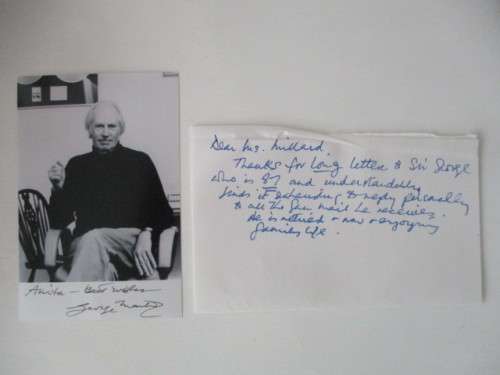 Anita - Best wishes
George Martin
Dear Ms. Millard.
Thanks for Long letter to Sir George
who is 87 and understandably
finds it exhausting to reply personally
to all the fan mail he receives.
He is retired & now enjoying
family life.